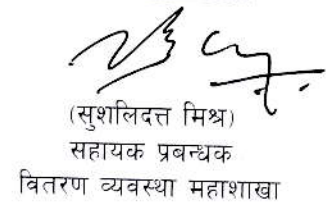 (सुशलिदत्त मिश्र)
सहायक प्रबन्धक
वितरण व्यवस्था महाशाखा